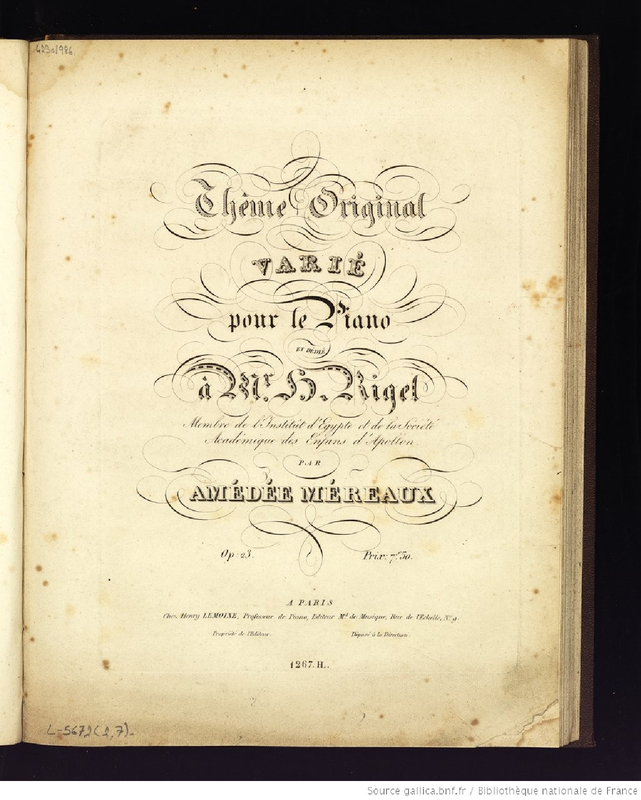 4230/986
Thême Original
VARIÉ
pour le Piano
ET DÉDIÉ
à Mr. H. Rigel
Membre de l'Institût d'Egypte et de la Société
Académique des Enfans d'Apollon
PAR
AMÉDÉE MÉREAUX
Op: 23. Prix: 7f 50.
A PARIS
Chez Henry LEMOINE, Professeur de Piano, Editeur Md de Musique, Rue de l'Echelle, No 9.
Propriété de l'Editeur. Déposé à la Direction.
1267. H.
L-5672 (2,7).
Source gallica.bnf.fr / Bibliothèque nationale de France